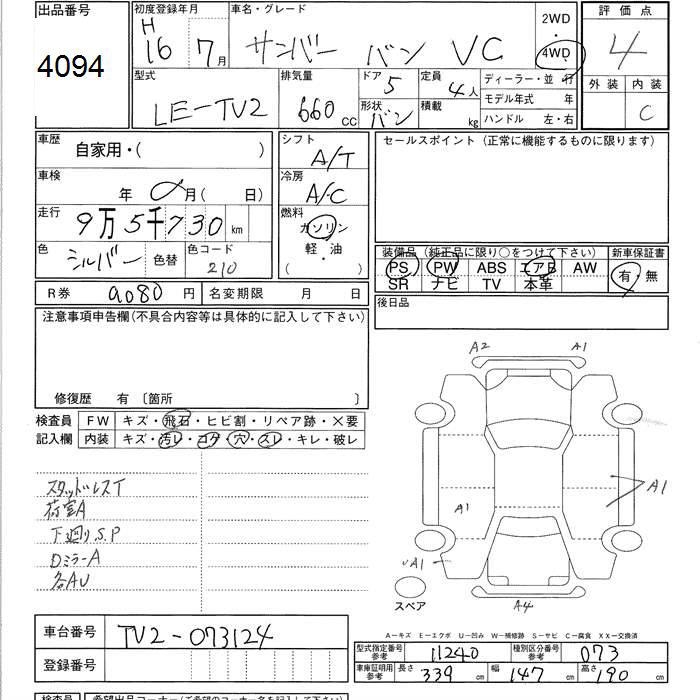 出品番号 初度登録年月 車名・グレード 2WD ・ 4WD 評価点
4094 H16 7月 サンバー バン VC 4
型式 排気量 ドア 5 定員 4人 ディーラー・並行 外装 内装
LE-TV2 660cc 形状 バン 積載 kg モデル年式 年 C
ハンドル 左・右
車歴 自家用・( ) シフト A/T セールスポイント (正常に機能するものに限ります)
車検 年 月( 日) 冷房 A/C
走行 9万5千730km 燃料 ガソリン
軽・油
( )
色 シルバー 色替 色コード 210
装備品 (純正品に限り○をつけて下さい) 新車保証書
PS PW ABS エアB AW 有・無
SR ナビ TV 本革
R券 9080円 名変期限 月 日 後日品
注意事項申告欄(不具合内容等は具体的に記入して下さい)
修復歴 有 〔箇所 〕
検査員 FW キズ・飛石・ヒビ割・リペア跡・X要
記入欄 内装 キズ・汚レ・コゲ・穴・スレ・キレ・破レ
A2 A1
A1 A1
A1
A4
スタッドレスT
荷室A
下廻りS.P
Dミラ-A
各AU
スペア
A-キズ E-エクボ U-凹み W-補修跡 S-サビ C-腐食 XX-交換済
車台番号 TV2-073124
登録番号
型式指定番号 参考 11240 種別区分番号 参考 073
車庫証明用 参考 長さ 339cm 幅 147cm 高さ 190cm
検査員 希望出品コーナー(ご希望のコーナー名を記入して下さい)